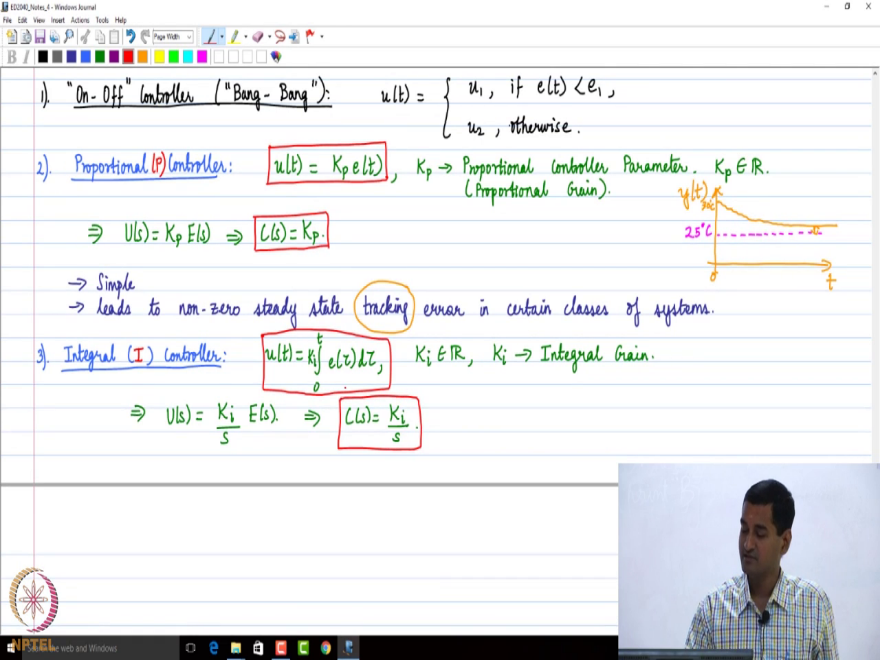 ED2040_Notes_4 - Windows Journal
File Edit View Insert Actions Tools Help
Page Width
B I
1). "On-Off" Controller ("Bang-Bang"): u(t) = { u₁, if e(t) < e₁,
u₂, otherwise.
2). Proportional (P) Controller: u(t) = Kp e(t), Kp → Proportional Controller Parameter. Kp ∈ ℝ.
(Proportional Gain).
y(t)
30°C
⇒ U(s) = Kp E(s) ⇒ C(s) = Kp.
25°C
0 t
→ Simple
→ leads to non-zero steady state tracking error in certain classes of systems.
3). Integral (I) Controller: u(t) = Ki ∫₀ᵗ e(τ)dτ, Ki ∈ ℝ, Ki → Integral Gain.
⇒ U(s) = Ki/s E(s). ⇒ C(s) = Ki/s.
NPTEL
the web and Windows